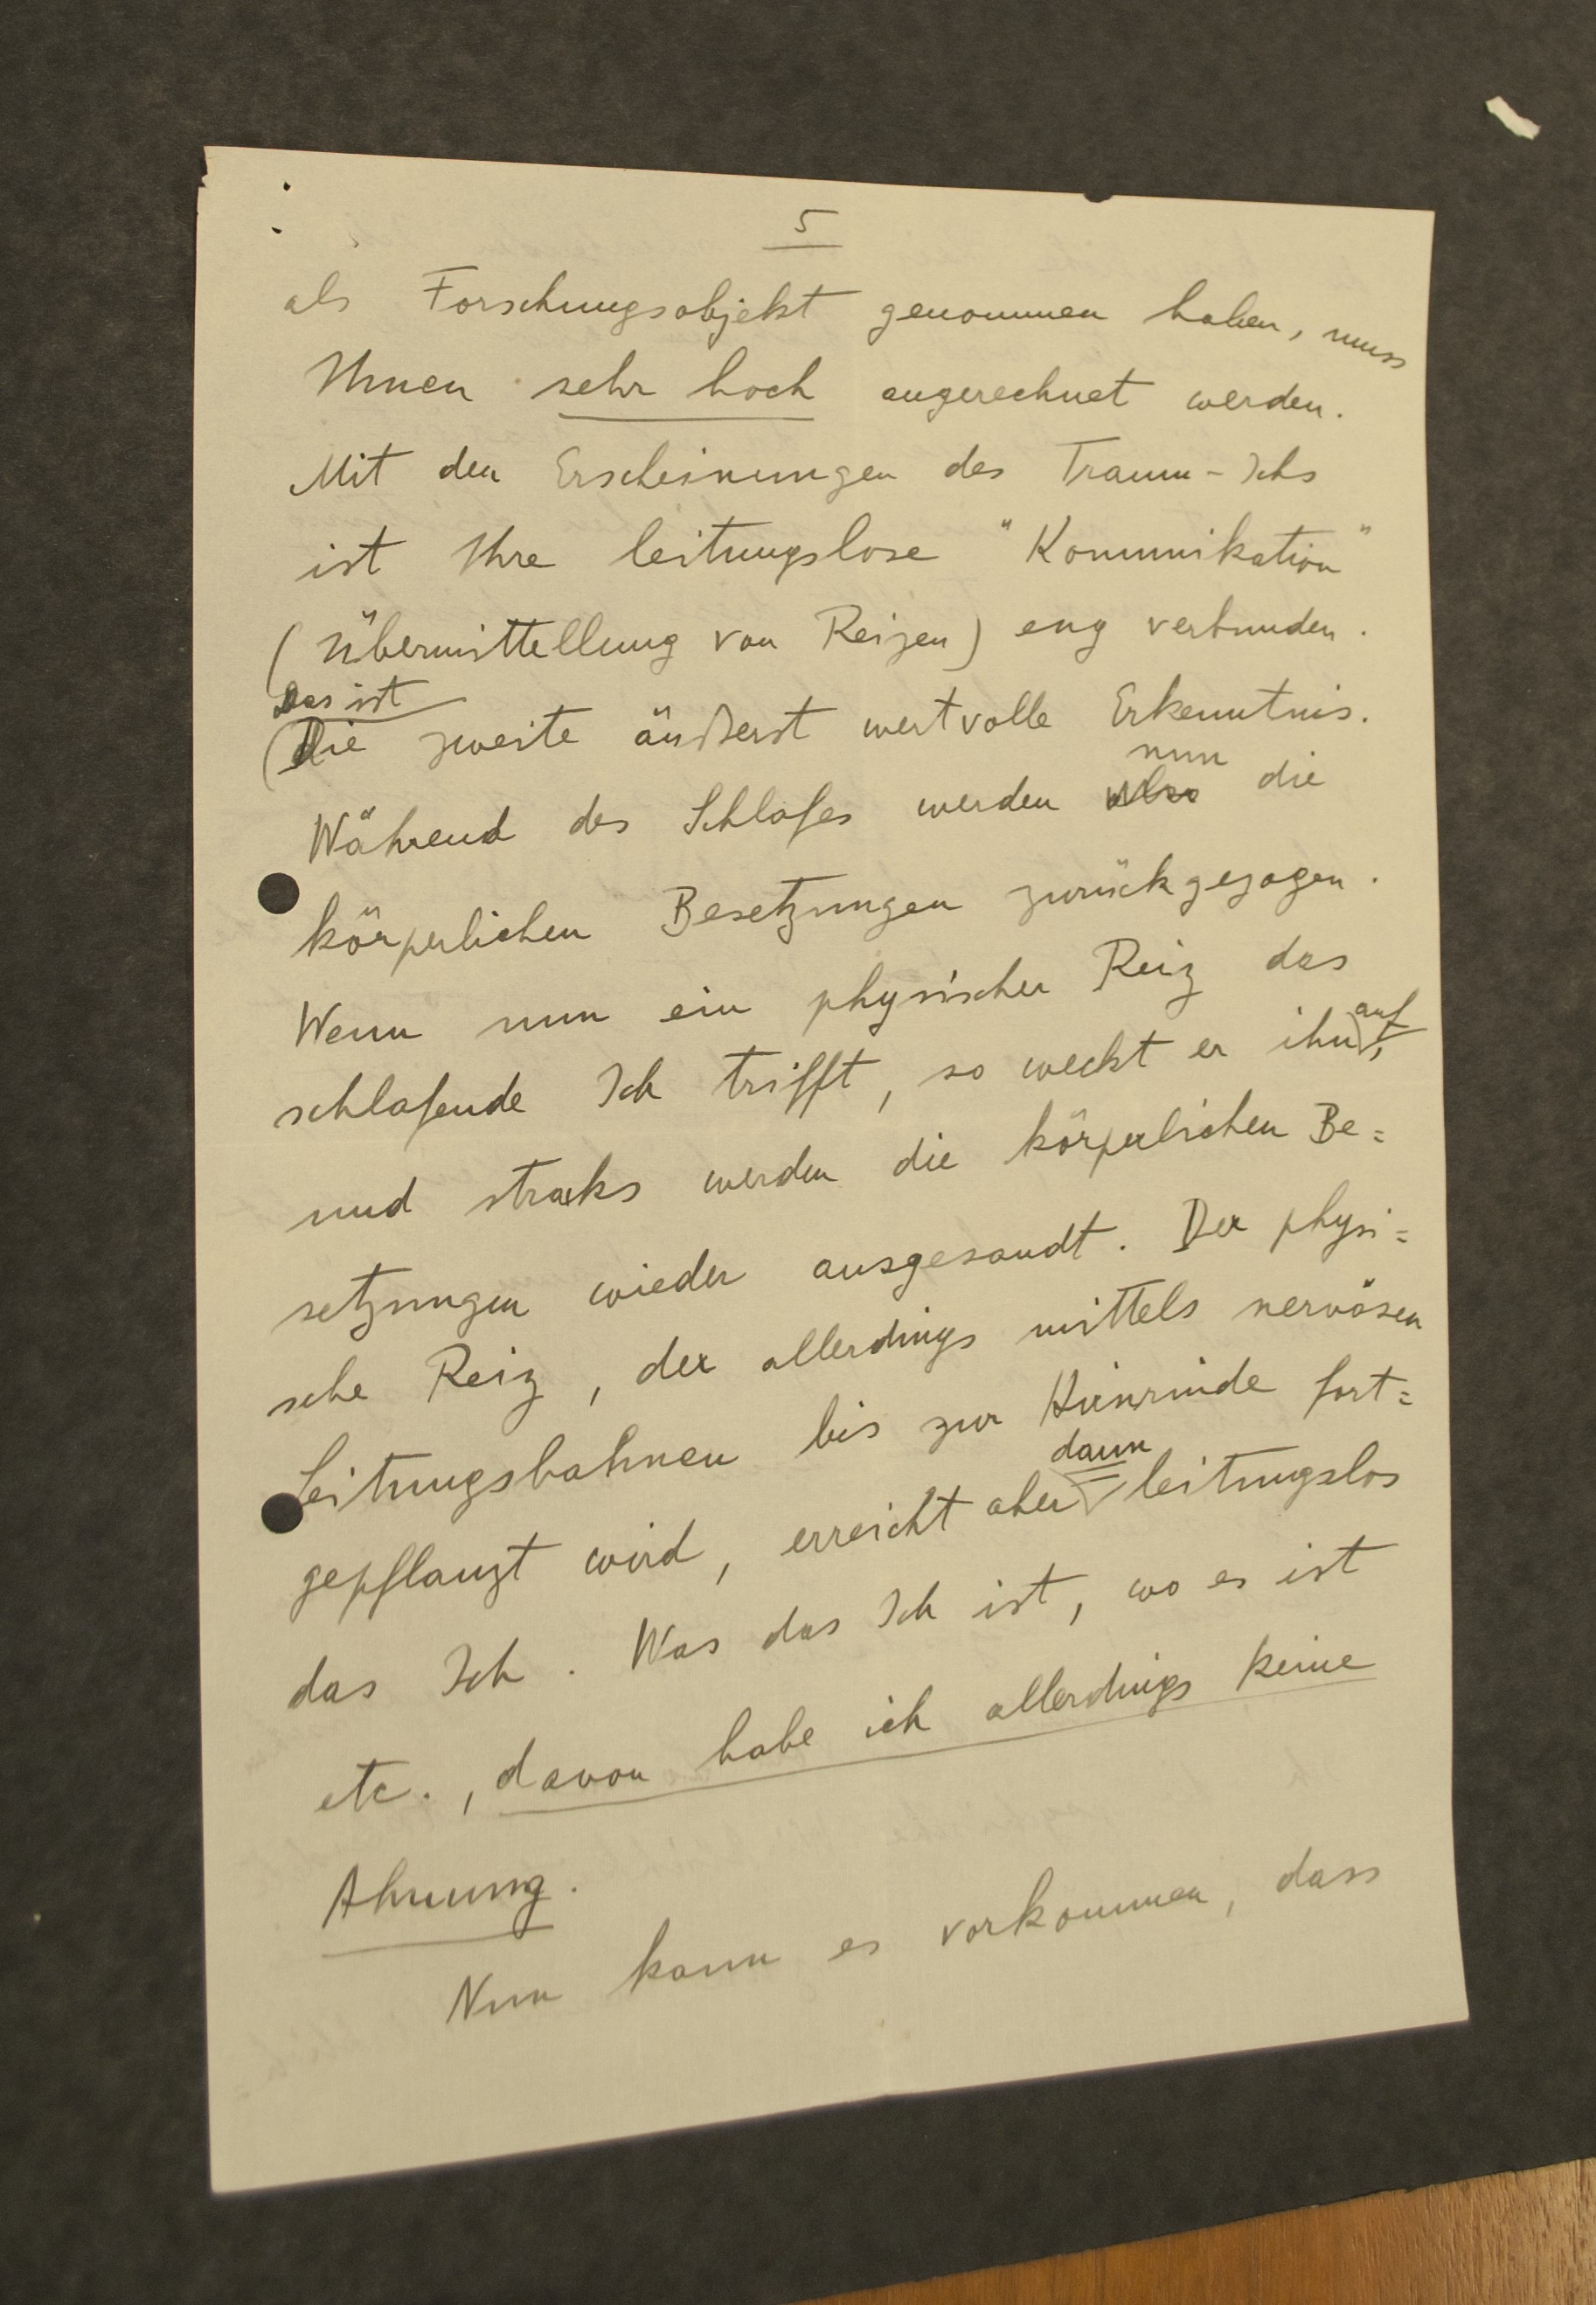 5
als Forschungsobjekt genommen haben, muss
Ihnen sehr hoch angerechnet werden.
Mit den Erscheinungen des Traum-Ichs
ist Ihre leitungslose "Kommunikation"
(Übermittellung von Reizen) eng verbunden.
Das ist
(Die zweite äußerst wertvolle Erkenntnis.
nun
Während des Schlafes werden also die
körperlichen Besetzungen zurückgezogen.
Wenn nun ein physischer Reiz das
auf
schlafende Ich trifft, so weckt er ihn,
und stracks werden die körperlichen Be=
setzungen wieder ausgesandt. Der physi=
sche Reiz, der allerdings mittels nervösen
Leitungsbahnen bis zur Hirnrinde fort=
dann
gepflanzt wird, erreicht aber leitungslos
das Ich. Was das Ich ist, wo es ist
etc., davon habe ich allerdings keine
Ahnung.
Nun kann es vorkommen, dass